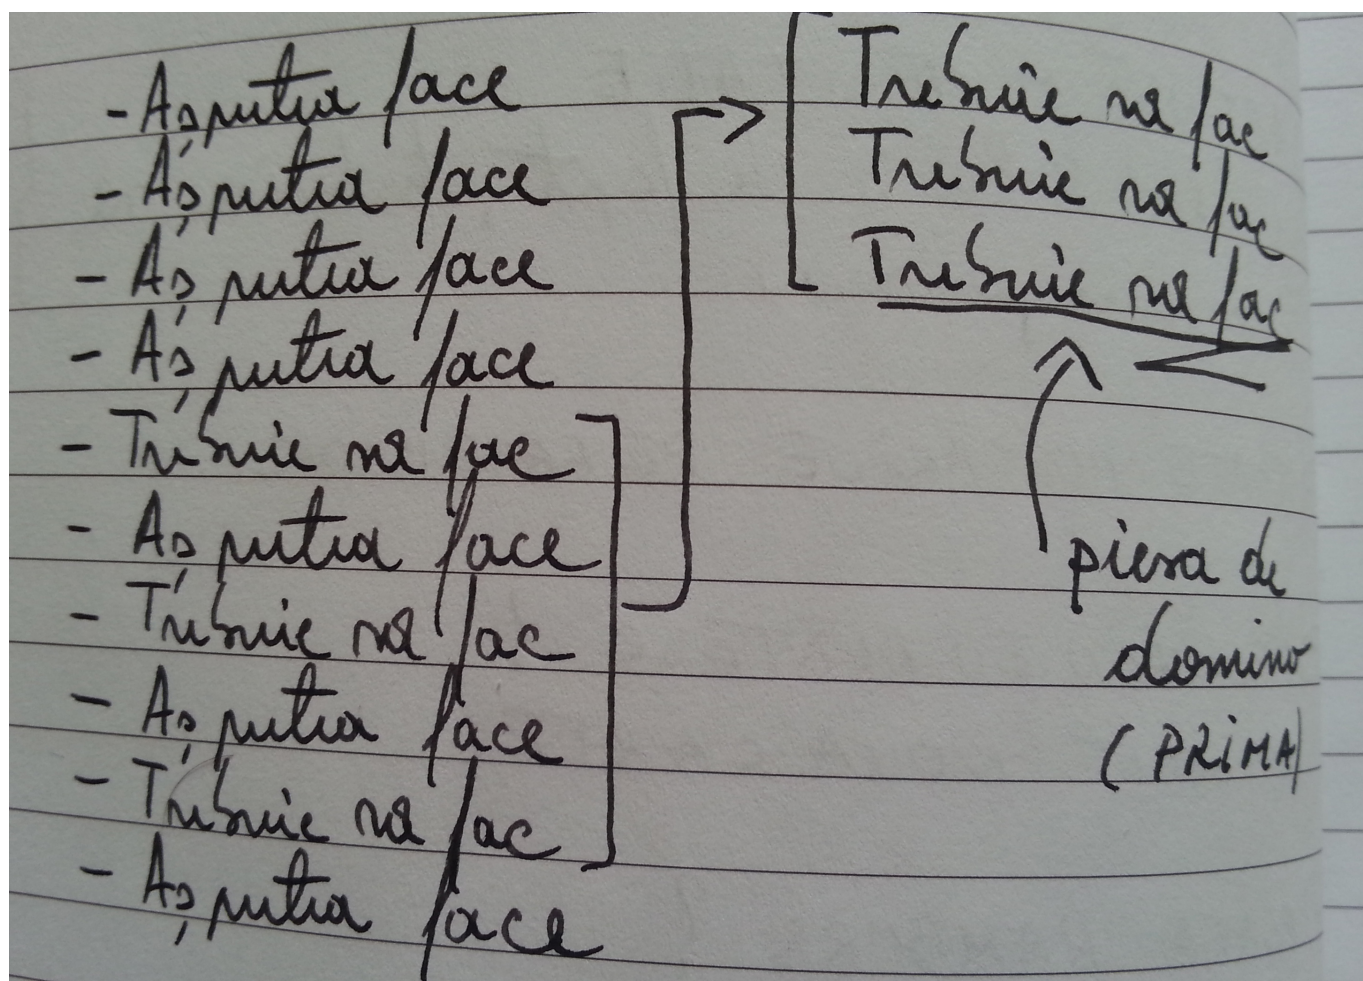 - Aș putea face
- Aș putea face
- Aș putea face
- Aș putea face
- Trebuie să fac
- Aș putea face
- Trebuie să fac
- Aș putea face
- Trebuie să fac
- Aș putea face
Trebuie să fac
Trebuie să fac
Trebuie să fac
piesa de
domino
(PRIMA)